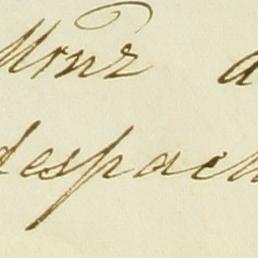 Monz a
despach